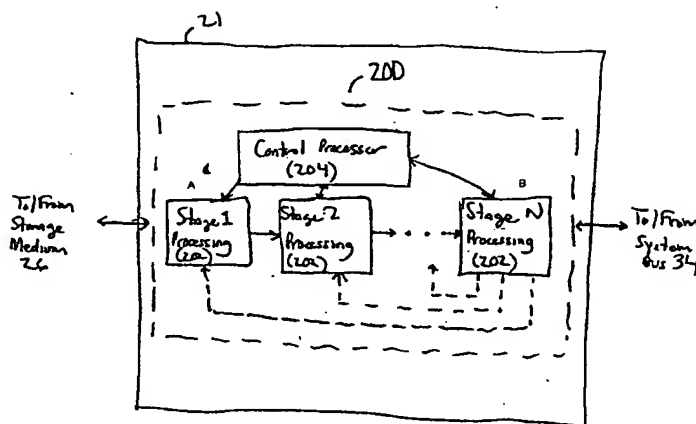 21
200
Control Processor
(204)
A
B
To/From
Storage
Medium
26
Stage 1
Processing
(202)
Stage 2
Processing
(202)
Stage N
Processing
(202)
To/From
System
Bus 34